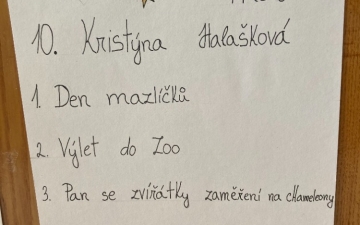 10. Kristýna Halašková
1. Den mazlíčků
2. Výlet do Zoo
3. Pan se zvířátky zaměření na chameleony